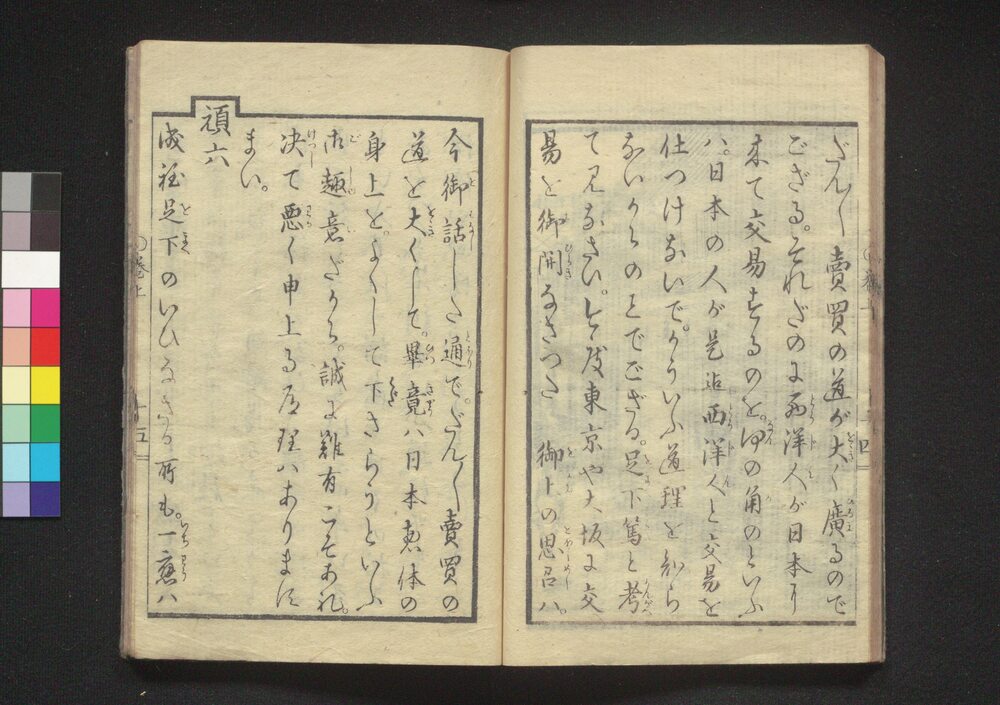 だん〳〵賣買の道が大く廣るので
ござる。それだのに西洋人が日本に
来て交易するのを。何の角のといふ
ハ。日本の人が是迄西洋人と交易を
仕つけないで。かういふ道理を知ら
ないからの事でござる。足下篤と考
て見なさい。今度東京や大坂に交
易を御開なさつた 御上の思召ハ。
今御話した通で。だん〳〵賣買の
道を大くして。畢竟ハ日本惣体の
身上をよくして下さらうといふ
御趣意だから。誠に難有こそあれ。
决て悪く申上る道理ハありませ
まい。
頑六
成程足下のいひなさる所も。一應ハ